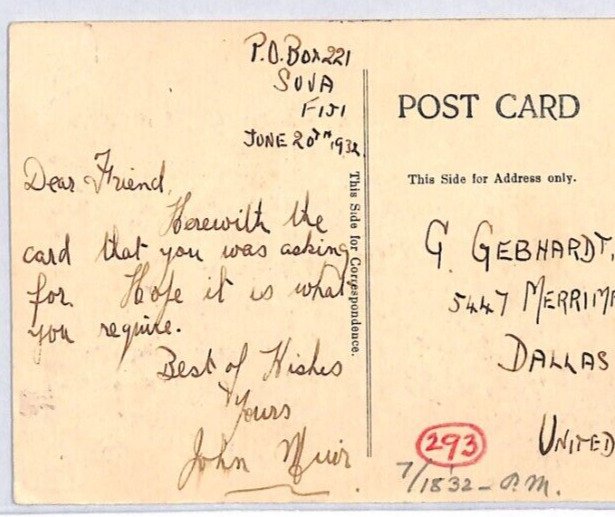 P.O. Box 221
SUVA
FIJI
JUNE 20TH, 1932.
Dear Friend,
Herewith the
card that you was asking
for. Hope it is what
you require.
Best of Wishes
Yours
John Muir
This Side for Correspondence.
POST CARD
This Side for Address only.
G. GEBHARDT,
5447 MERRIM
DALLAS
UNITED
293
7/18'32 - P.M.